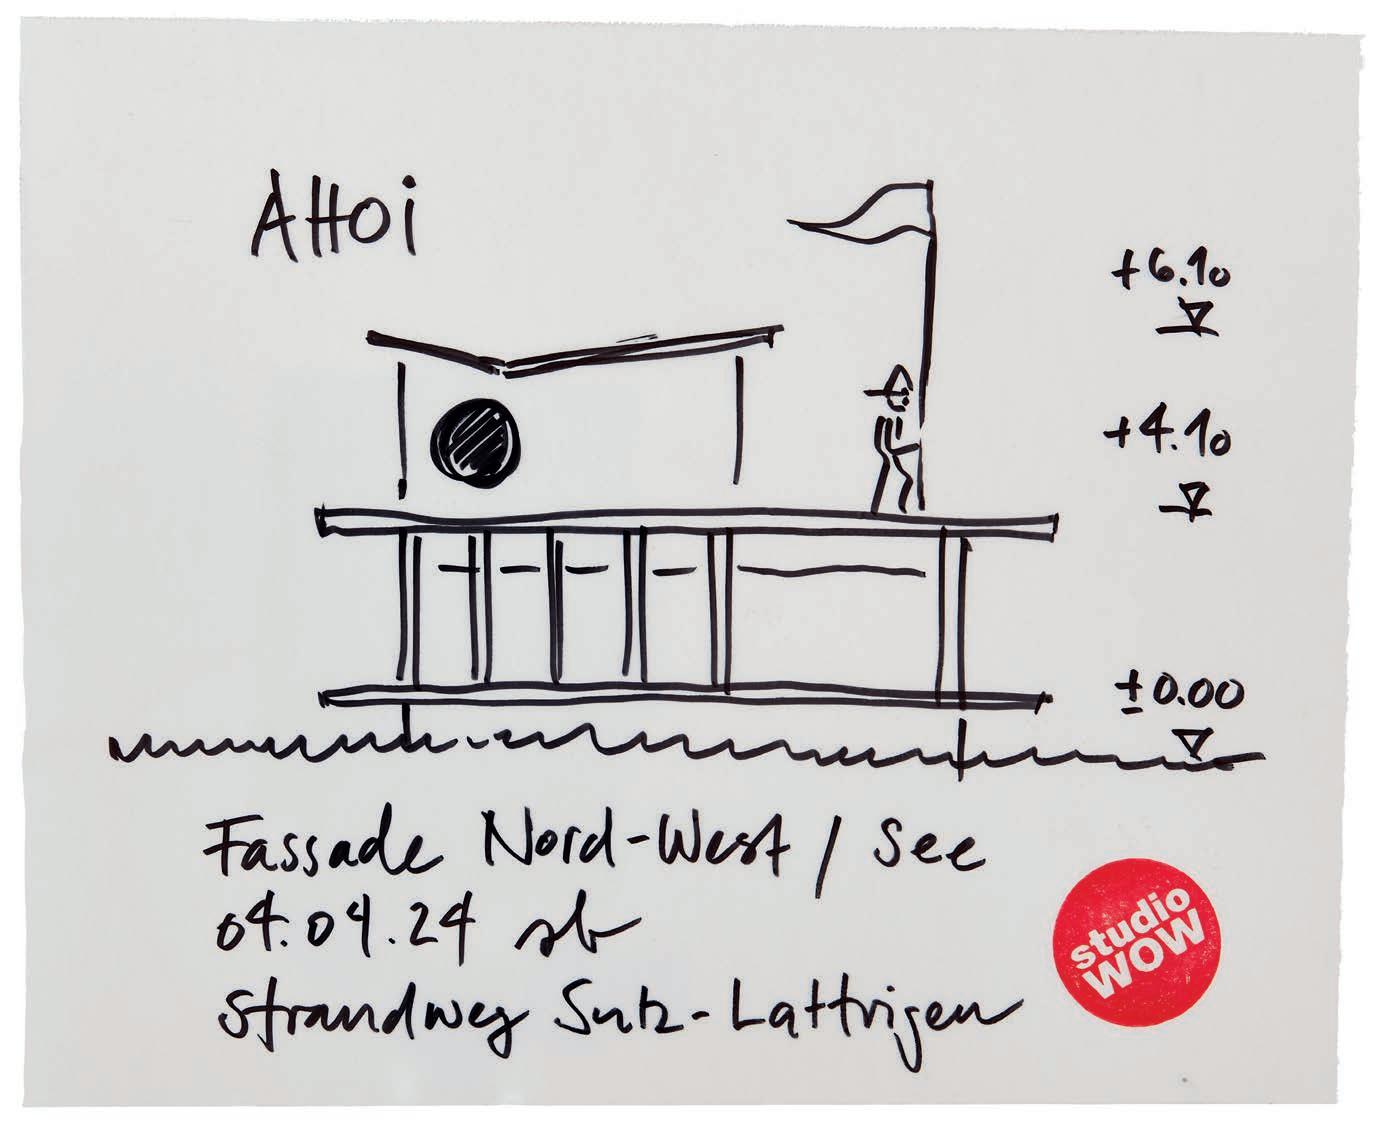 AHOi
+6.10
+4.10
±0.00
Fassade Nord-West / See
04.04.24 sb
Strandweg Sutz-Lattrigen
studio
WOW